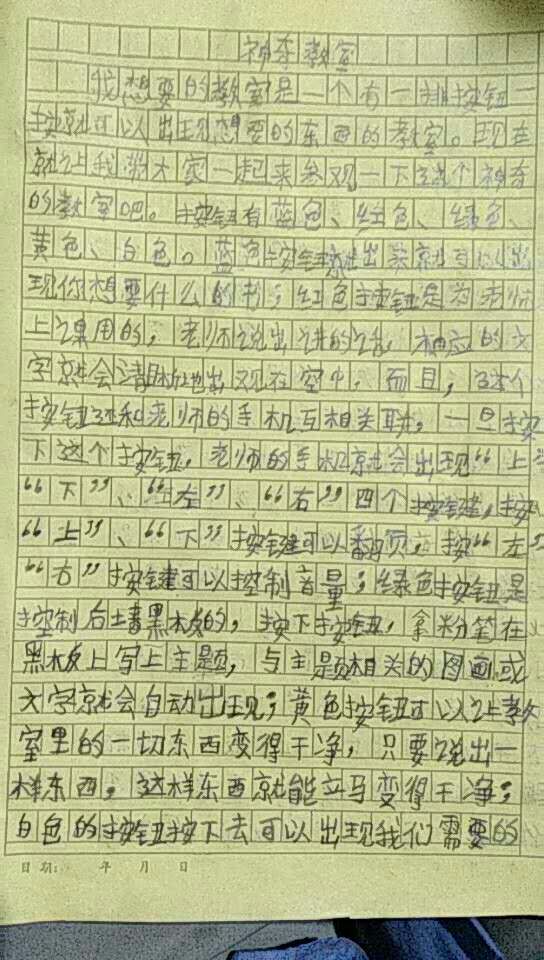 神奇教室
我想要的教室是一个有一排按钮一
按就可以出现想要的东西的教室。现在
就让我带大家一起来参观一下这个神奇
的教室吧。按钮有蓝色、红色、绿色、
黄色、白色。蓝色按钮出就可以出
现你想要什么的书；红色按钮是为老师
上课用的，老师说出讲的话，相应的文
字就会清晰地出现在空中，而且，这个
按钮还和老师的手机互相关联，一旦按
下这个按钮，老师的手机就会出现“上
“下”、“左”、“右”四个按键，按
“上”、“下”按键可以翻页，按“左”
“右”按键可以控制音量；绿色按钮是
控制后墙黑板的，按下按钮，拿粉笔在
黑板上写上主题，与主题相关的图画或
文字就会自动出现；黄色按钮可以让教
室里的一切东西变得干净，只要说出一
样东西，这样东西就能立马变得干净；
白色的按钮按下去可以出现我们需要的
日期： 年 月 日